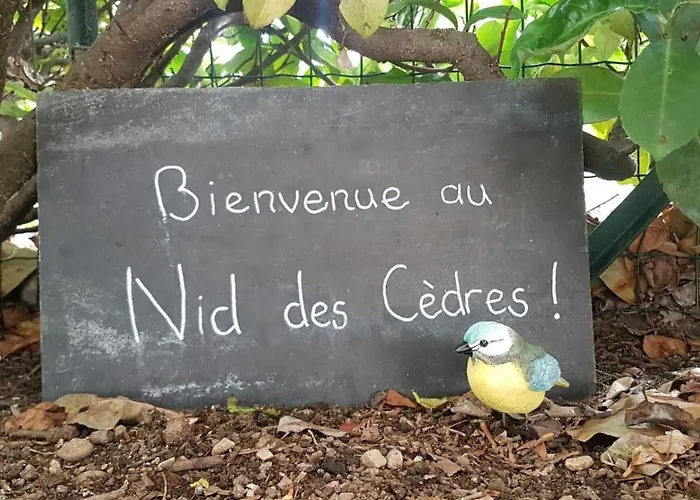 Bienvenue au
Nid des Cèdres !